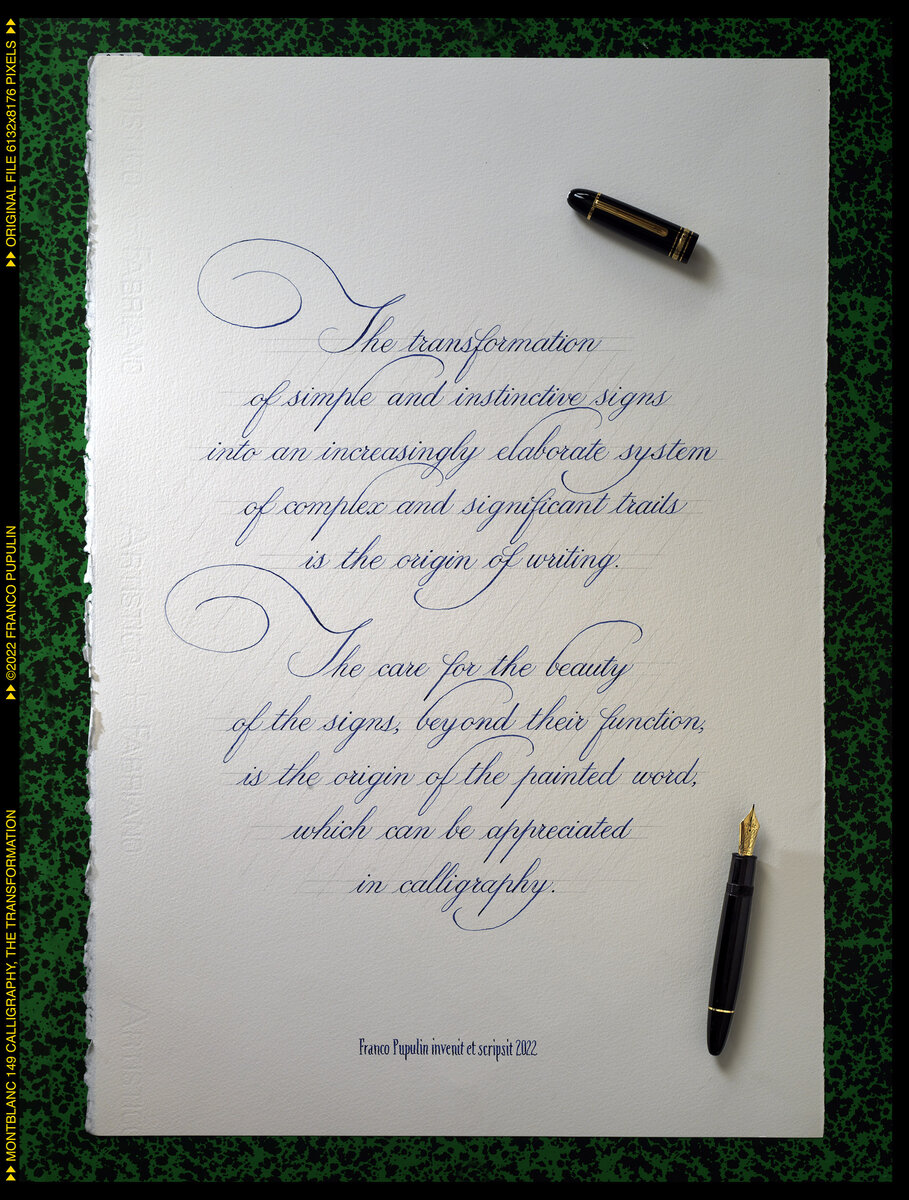 The transformation
of simple and instinctive signs
into an increasingly elaborate system
of complex and significant trails
is the origin of writing.
The care for the beauty
of the signs, beyond their function,
is the origin of the painted word,
which can be appreciated
in calligraphy.
Franco Pupulin invenit et scripsit 2022
MONTBLANC 149 CALLIGRAPHY, THE TRANSFORMATION
©2022 FRANCO PUPULIN
ORIGINAL FILE 6132x8176 PIXELS
FABRIANO
ARTISTICO
FABRIANO